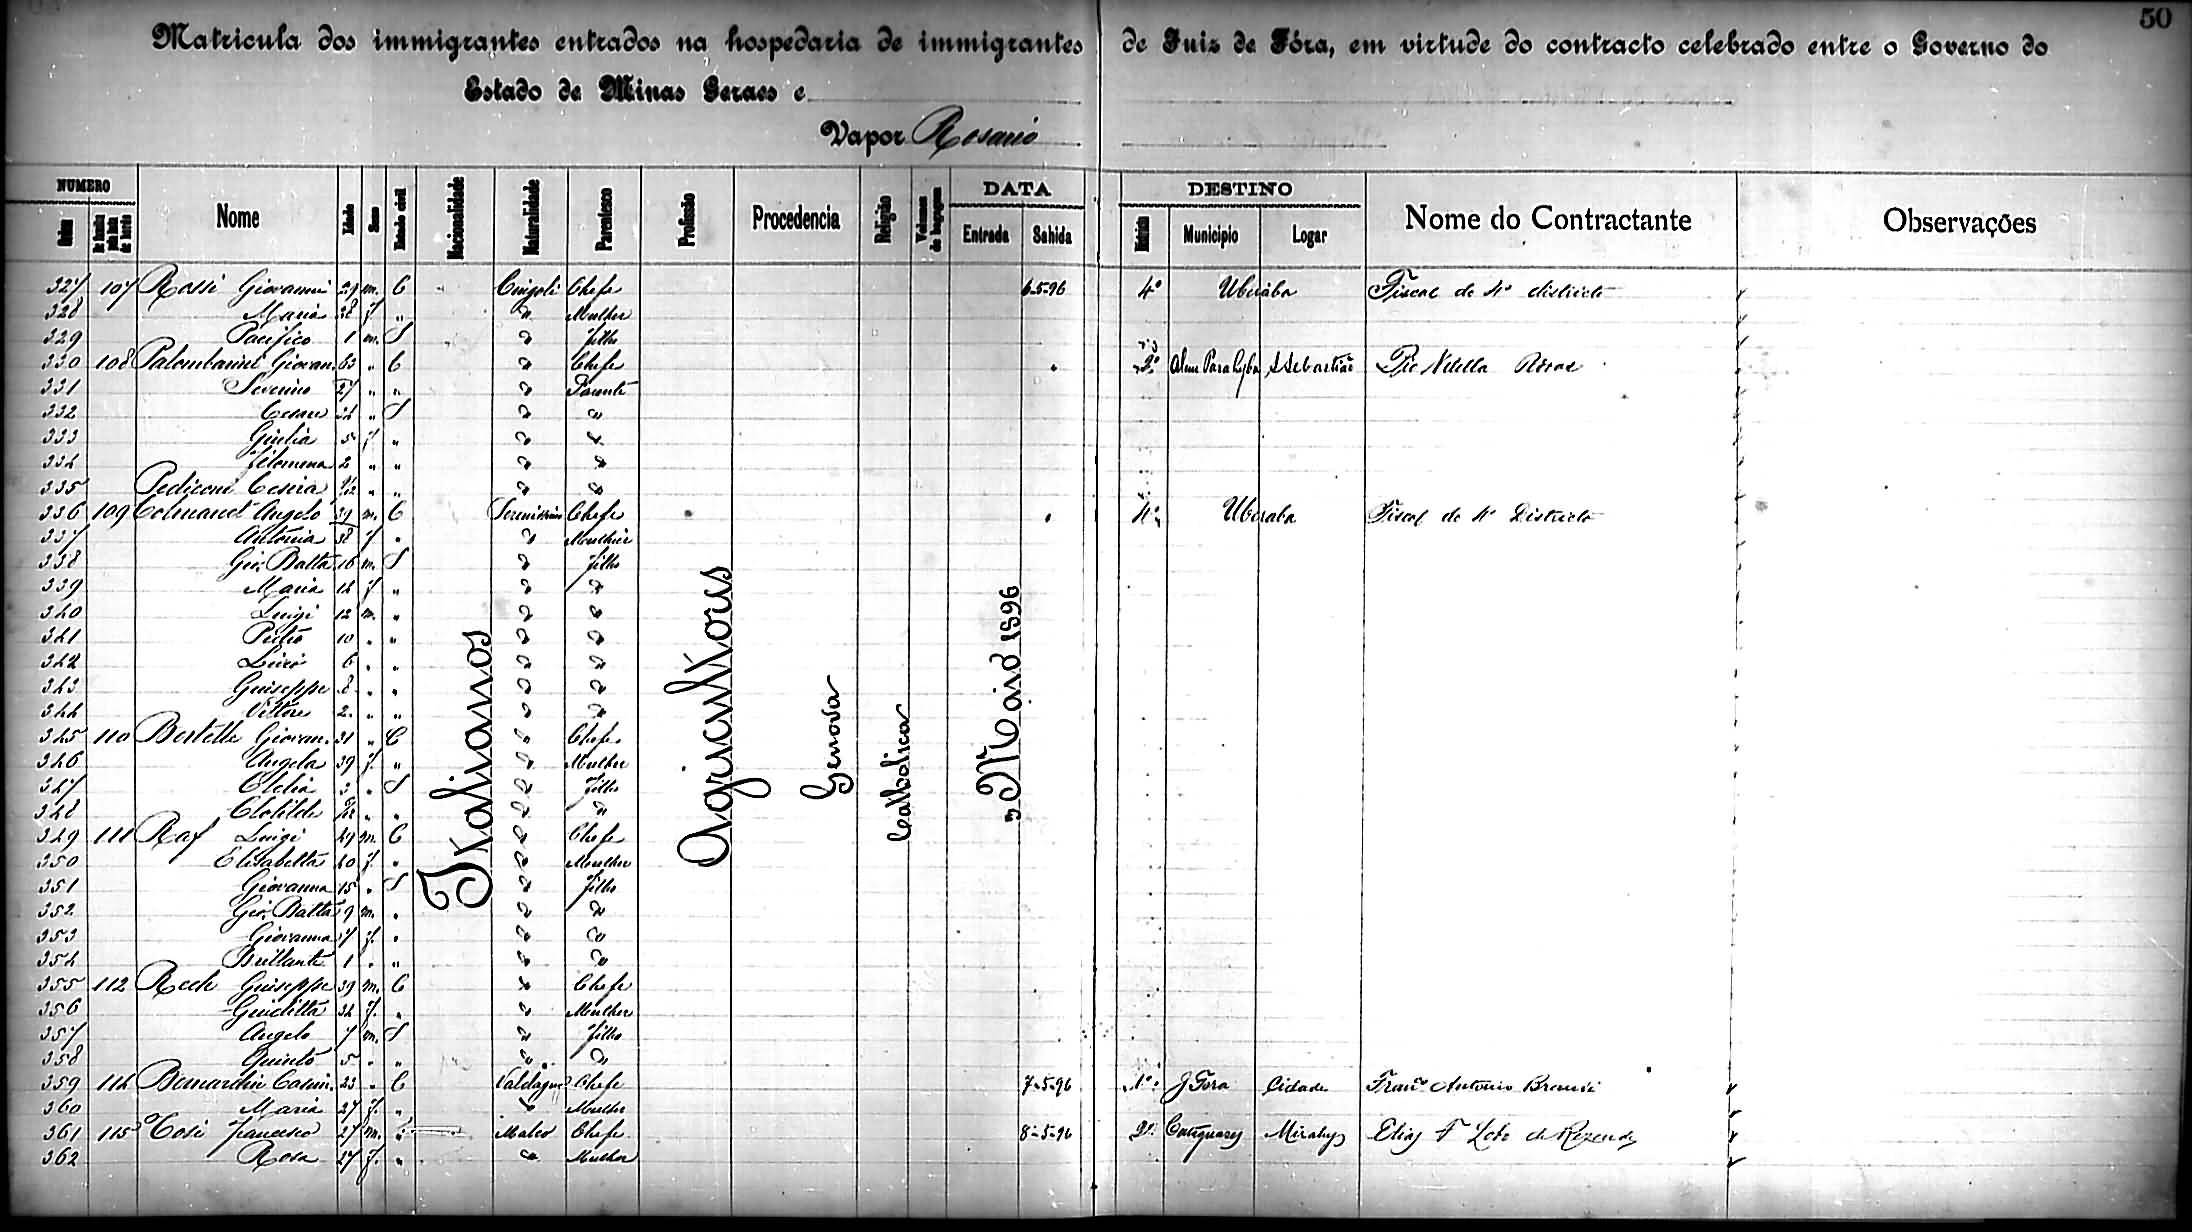 50
Matricula dos immigrantes entrados na hospedaria de immigrantes de Juiz de Fóra, em virtude do contracto celebrado entre o Governo do
Estado de Minas Geraes e
Vapor Rosario
NUMERO Nome Idade Sexo Estado civil Nacionalidade Naturalidade Parentesco Profissão Procedencia Religião Volumes de bagagem DATA DESTINO Nome do Contractante Observações
Ordem Entrada Sahida Districto Municipio Logar
Italianos Agricultores Genova Catholica 3 Maio 1896
327 107 Rossi Giovanni 29 m. C Cingoli Chefe 6-5-96 4º Uberaba Fiscal do 4º districto
328 Maria 28 f " " Mulher
329 Pacifico 1 m. S " filho
330 108 Palombarini Giovan. 63 " C " Chefe " 2º Alem Parahyba S Sebastião
331 Severino 27 " " " Parente
332 Cesare 24 " S " "
333 Giulia 5 f " " "
334 Filomena 2 " " " "
335 Pediconi " " " "
336 109 Angelo 39 m. C Chefe " 4º Uberaba Fiscal do 4º Districto
337 Antonia 38 f " " Mulher
338 Gio. Batta 16 m. S " filho
339 Maria 14 f " " "
340 Luigi 12 m. " " "
341 Pietro 10 " " " "
342 6 " " " "
343 Guiseppe 8 " " " "
344 Vittore 2 " " " "
345 110 Bertelle Giovan. 31 " C " Chefe
346 Angela 39 f. " " Mulher
347 Clelia 3 " S " filho
348 Clotilde " " " "
349 111 Raf Luigi 49 m. C " Chefe
350 Elisabetta 40 f. " " Mulher
351 Giovanna 15 " S " filho
352 Gio. Batta 9 m. " " "
353 Giovanna 7 f. " " "
354 Brillante 1 " " " "
355 112 Rech Guiseppe 39 m. C " Chefe
356 Giuditta 34 f. " " Mulher
357 Angelo 7 m. S " filho
358 Quinto 5 " " " "
359 114 Bernardin Casim. 23 " C Valdagno Chefe 7-5-96 1º J Fora Cidade Franco Antonio
360 Maria 27 f. " " Mulher
361 115 Tosi Francesco 27 m. " Chefe 8-5-96 2º Cataguazes Mirahy Elias F Lobo de Rezende
362 Rosa 27 f. " " Mulher